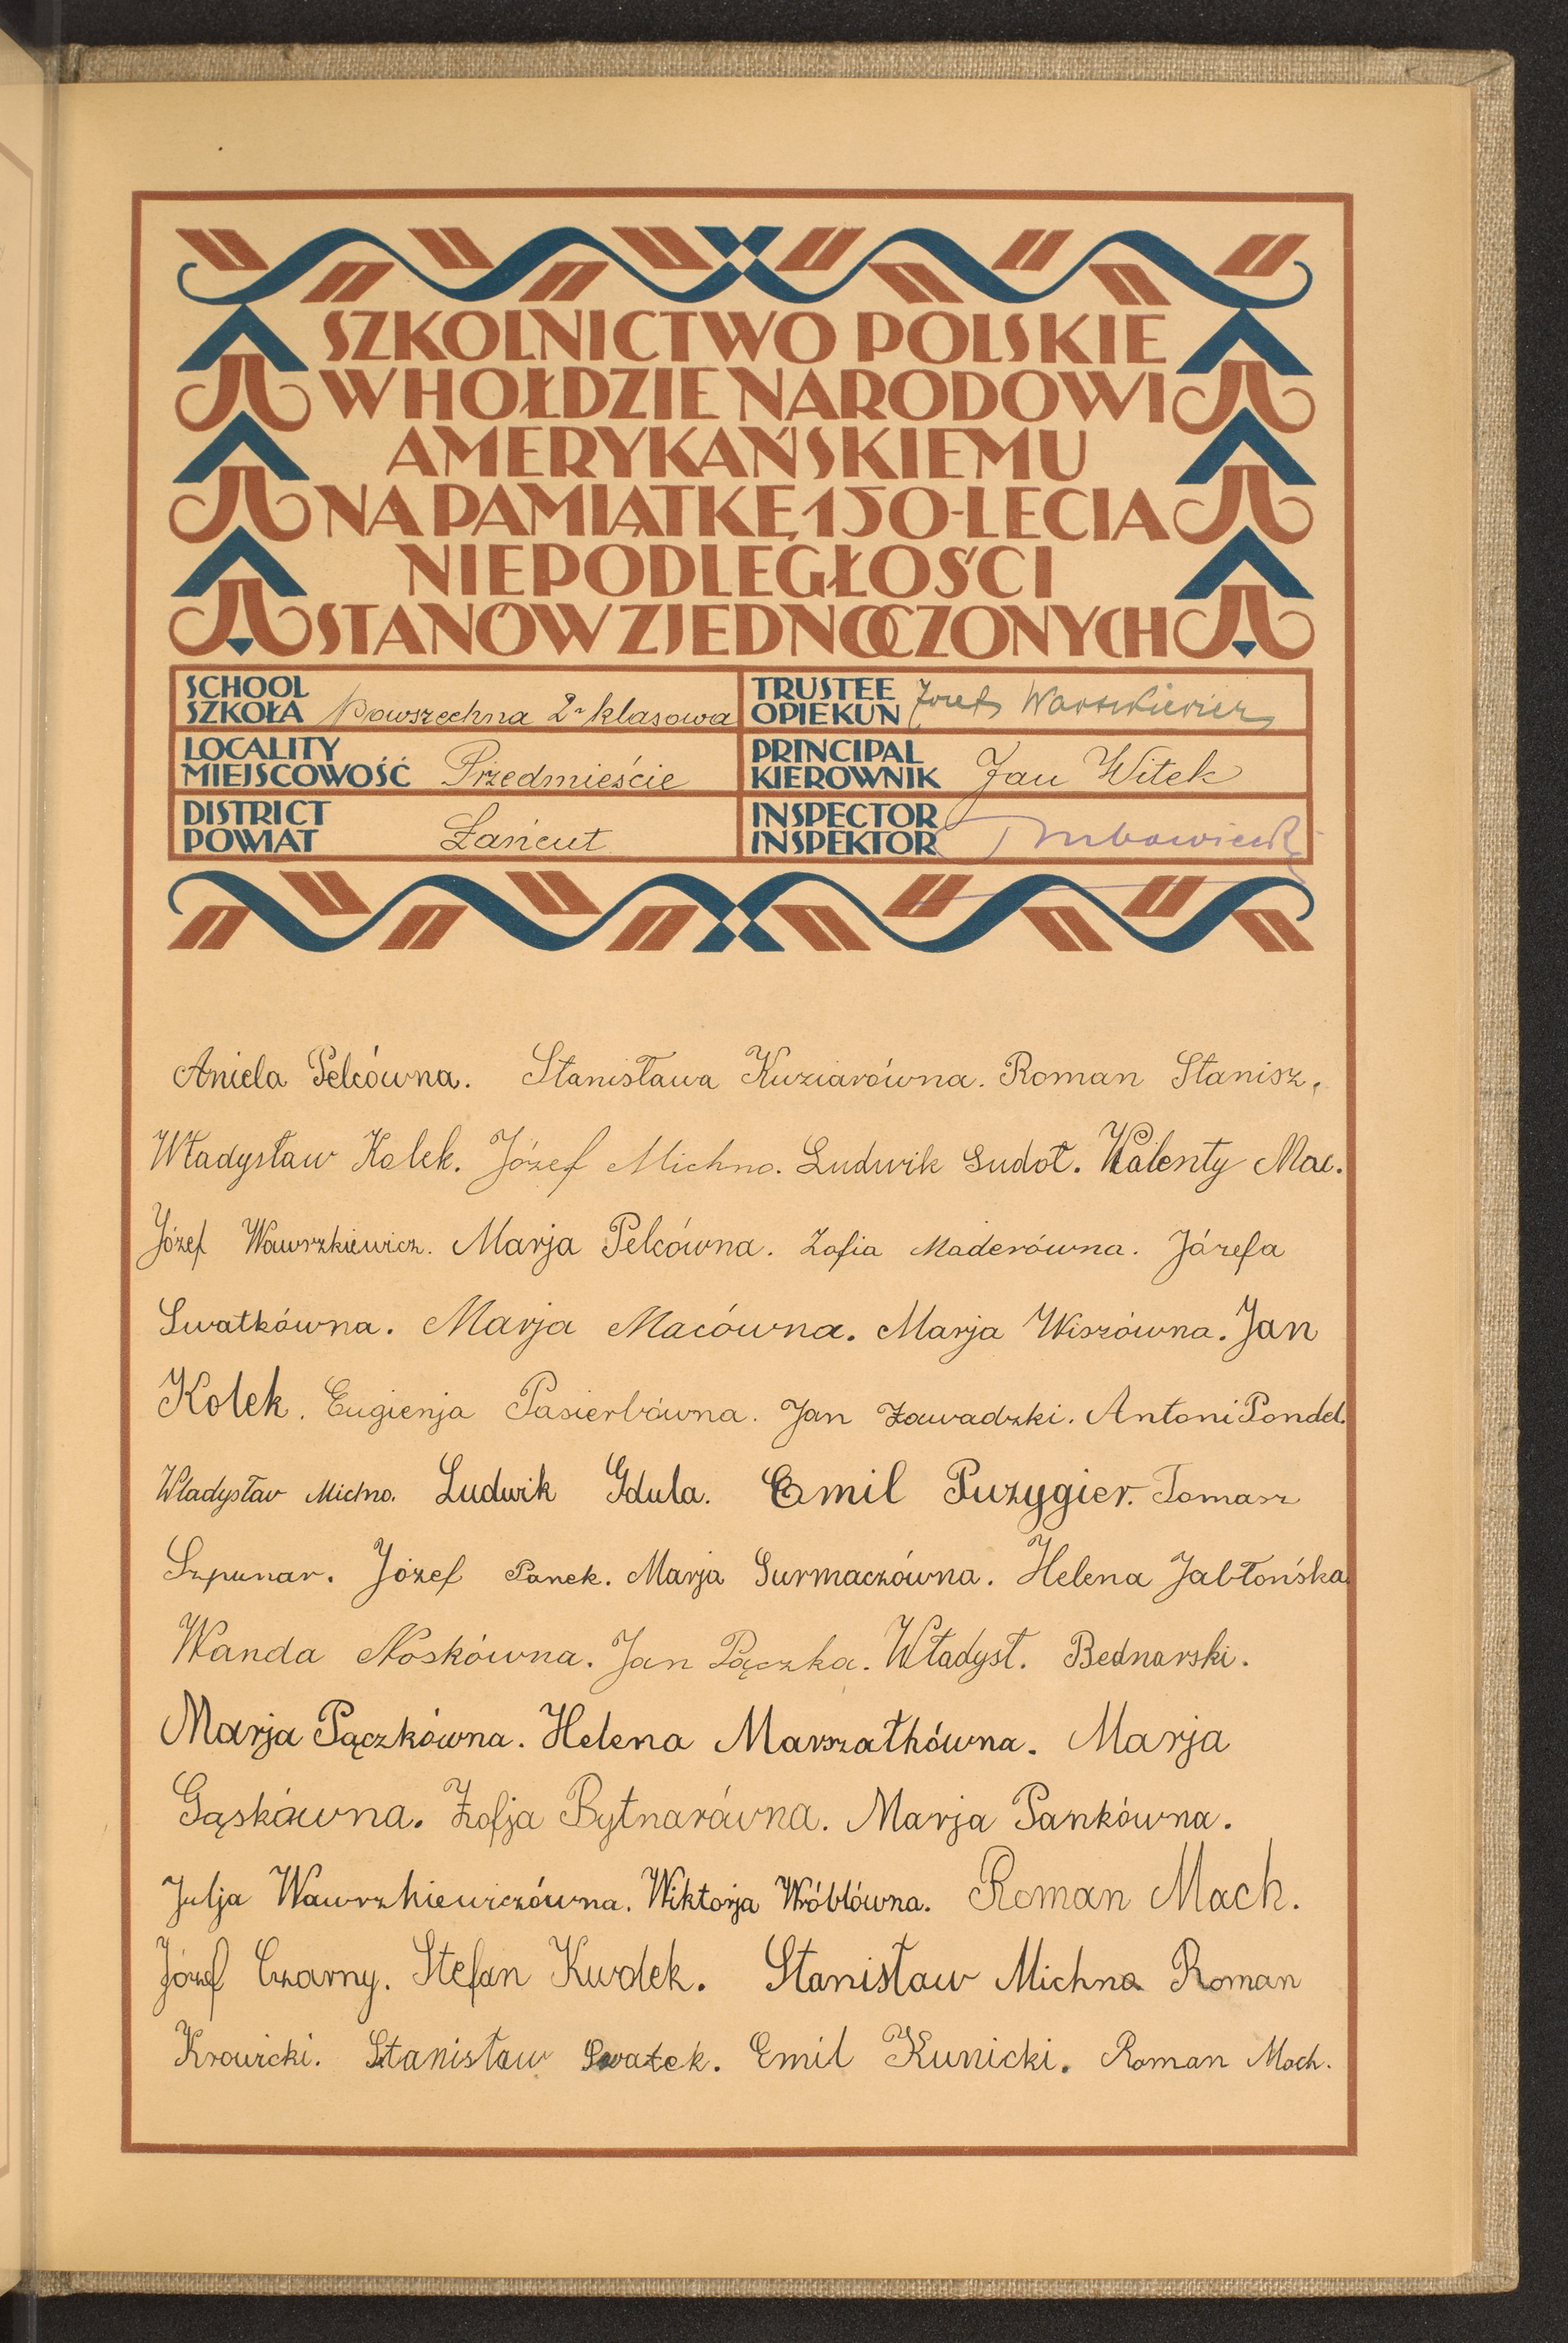 SZKOLNICTWO POLSKIE
W HOŁDZIE NARODOWI
AMERYKAŃSKIEMU
NA PAMIĄTKĘ 150-LECIA
NIEPODLEGŁOŚCI
STANÓW ZJEDNOCZONYCH
SCHOOL
SZKOŁA Powszechna 2-klasowa
TRUSTEE
OPIEKUN Józef Wawrzkiewicz
LOCALITY
MIEJSCOWOŚĆ Przedmieście
PRINCIPAL
KIEROWNIK Jan Witek
DISTRICT
POWIAT Łańcut
INSPECTOR
INSPEKTOR
Aniela Pelcówna. Stanisława Kuziarówna. Roman Stanisz.
Władysław Kolek. Józef Michno. Ludwik Sudoł. Walenty Mac.
Józef Wawrzkiewicz. Marja Pelcówna. Zofia Maderówna. Józefa
Swatkówna. Marja Macówna. Marja Wiszówna. Jan
Kolek. Eugienja Pasierbówna. Jan Zawadzki. Antoni Pondel.
Władysław Michno. Ludwik Gdula. Emil Puzygier. Tomasz
Szpunar. Józef Panek. Marja Surmaczówna. Helena Jabłońska.
Wanda Noskówna. Jan Pączka. Władysł. Bednarski.
Marja Pączkówna. Helena Marszałkówna. Marja
Gąskówna. Zofja Bytnarówna. Marja Pankówna.
Julja Wawrzkiewiczówna. Wiktorja Wróblówna. Roman Mach.
Józef Czarny. Stefan Kwolek. Stanisław Michno Roman
Krowicki. Stanisław Swatek. Emil Kunicki. Roman Mach.